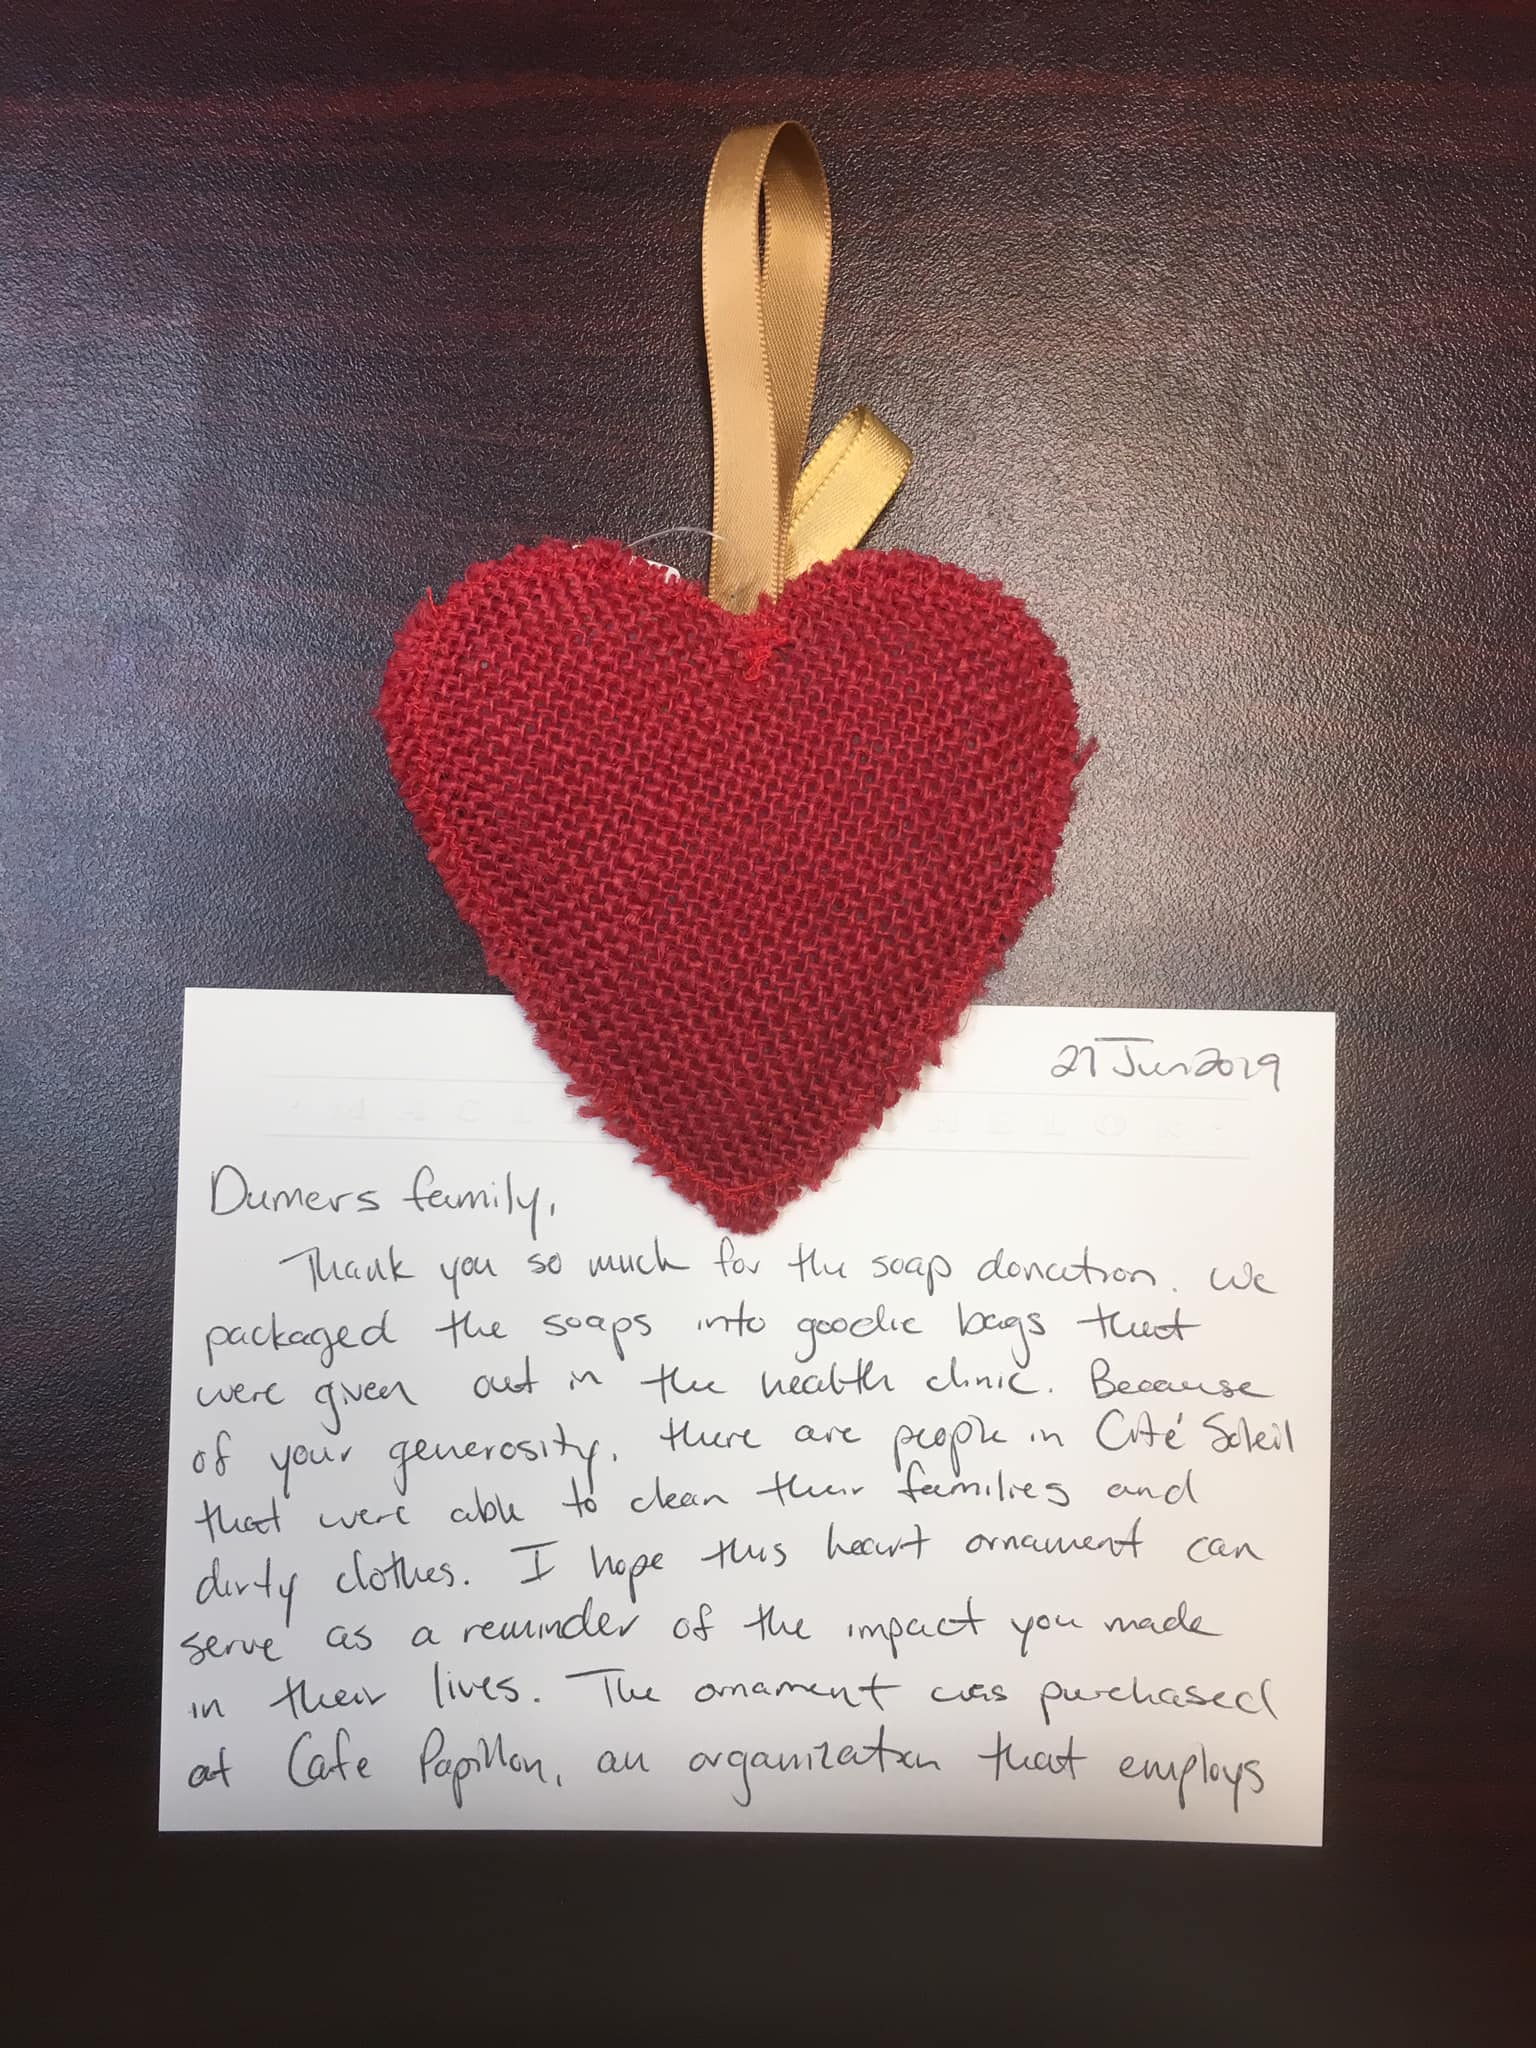 27Jun2019
Dumers family,
Thank you so much for the soap donation. We
packaged the soaps into goodie bags that
were given out in the health clinic. Because
of your generosity, there are people in Cité Soleil
that were able to clean their families and
dirty clothes. I hope this heart ornament can
serve as a reminder of the impact you made
in their lives. The ornament was purchased
at Cafe Papillon, an organization that employs